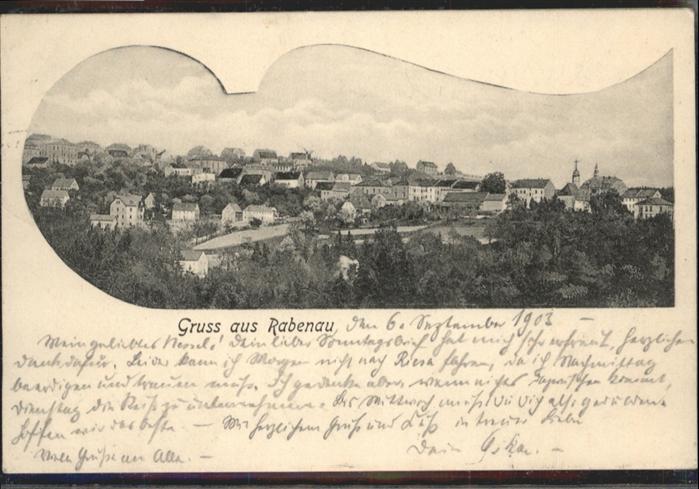 Gruss aus Rabenau, den 6. September 1903 –
Mein geliebtes Dein lieber Sonntagsbrief hat mich sehr erfreut, herzlichen
Dank dafür. Leider kann ich Morgen nicht nach Riesa fahren, da ich Nachmittag
beerdigen und trauen muß. Ich gedenke aber, wenn nichts dazwischen kommt,
Dienstag die Reise zu unternehmen. Bis Mittwoch mußt Du Dich also gedulden
Hoffen wir das beste. – Mit herzlichem Gruß und Kuß in treuer Liebe
Viele Grüße an Alle. – Dein Oskar. –